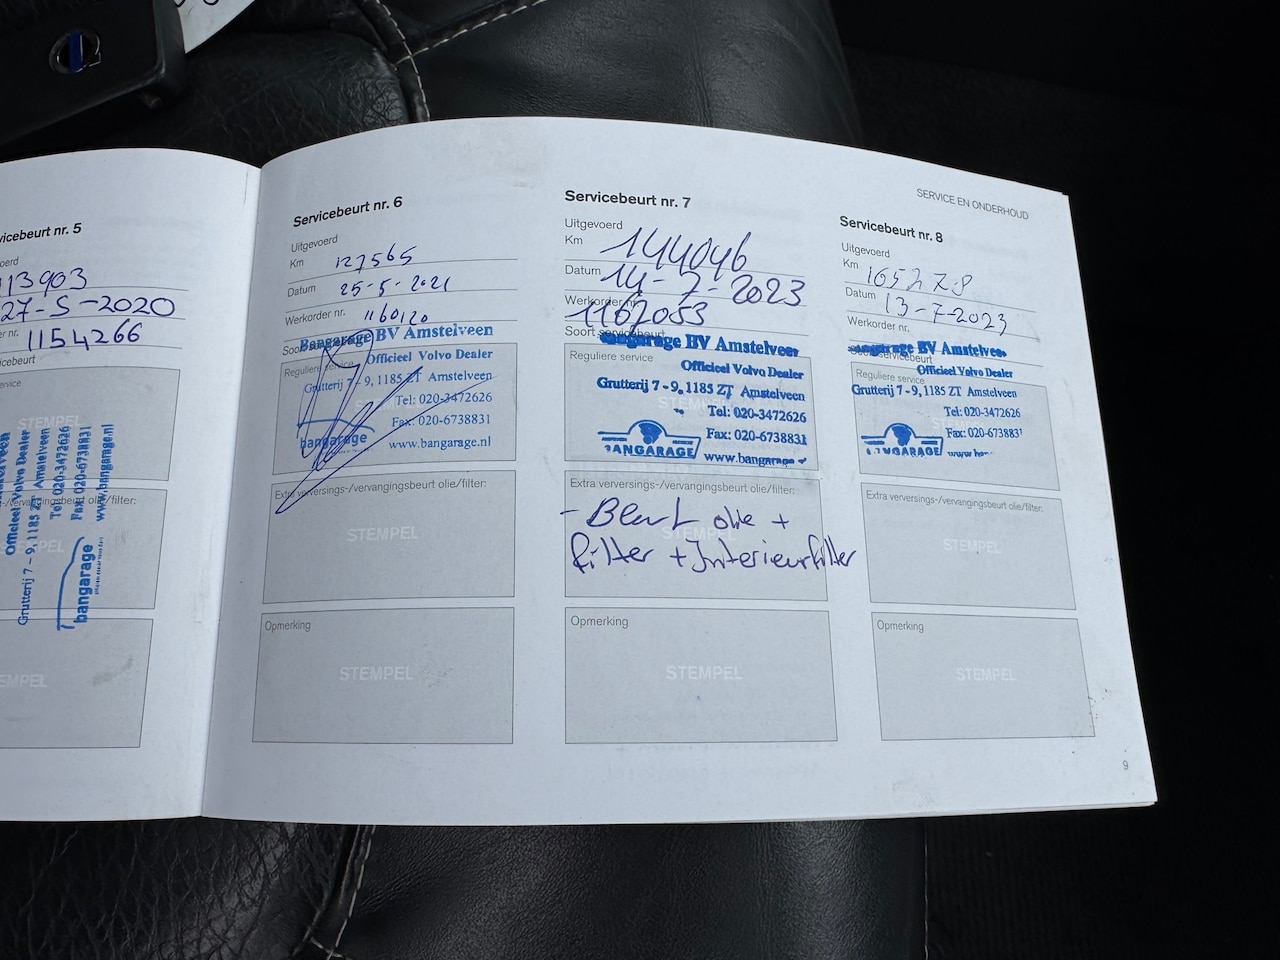 vicebeurt nr. 5
oerd
113903
27-5-2020
er nr. 1154266
icebeurt
ervice
STEMPEL
Officieel Volvo Dealer
Grutterij 7 - 9, 1185 ZT Amstelveen
Tel: 020-3472626
Fax: 020-6738831
www.bangarage.nl
bangarage
EMPEL
Servicebeurt nr. 6
Uitgevoerd
Km 127565
Datum 25-5-2021
Werkorder nr. 1160120
Bangarage BV Amstelveen
Officieel Volvo Dealer
Reguliere service
Grutterij 7 - 9, 1185 ZT Amstelveen
Tel: 020-3472626
Fax: 020-6738831
bangarage www.bangarage.nl
Extra verversings-/vervangingsbeurt olie/filter:
STEMPEL
Opmerking
STEMPEL
Servicebeurt nr. 7
Uitgevoerd
Km 144046
Datum 14-7-2023
Werkorder nr.
1162053
Soort servicebeurt
Bangarage BV Amstelveen
Reguliere service
Officieel Volvo Dealer
Grutterij 7 - 9, 1185 ZT Amstelveen
Tel: 020-3472626
Fax: 020-6738831
BANGARAGE www.bangarage
Extra verversings-/vervangingsbeurt olie/filter:
- Beurt olie +
filter + Interieurfilter
Opmerking
STEMPEL
SERVICE EN ONDERHOUD
Servicebeurt nr. 8
Uitgevoerd
Km 165278
Datum 13-7-2023
Werkorder nr.
angarage BV Amstelveen
Soort servicebeurt
Officieel Volvo Dealer
Reguliere service
Grutterij 7 - 9, 1185 ZT Amstelveen
Tel: 020-3472626
Fax: 020-6738831
NGARAGE www
Extra verversings-/vervangingsbeurt olie/filter:
STEMPEL
Opmerking
STEMPEL
9